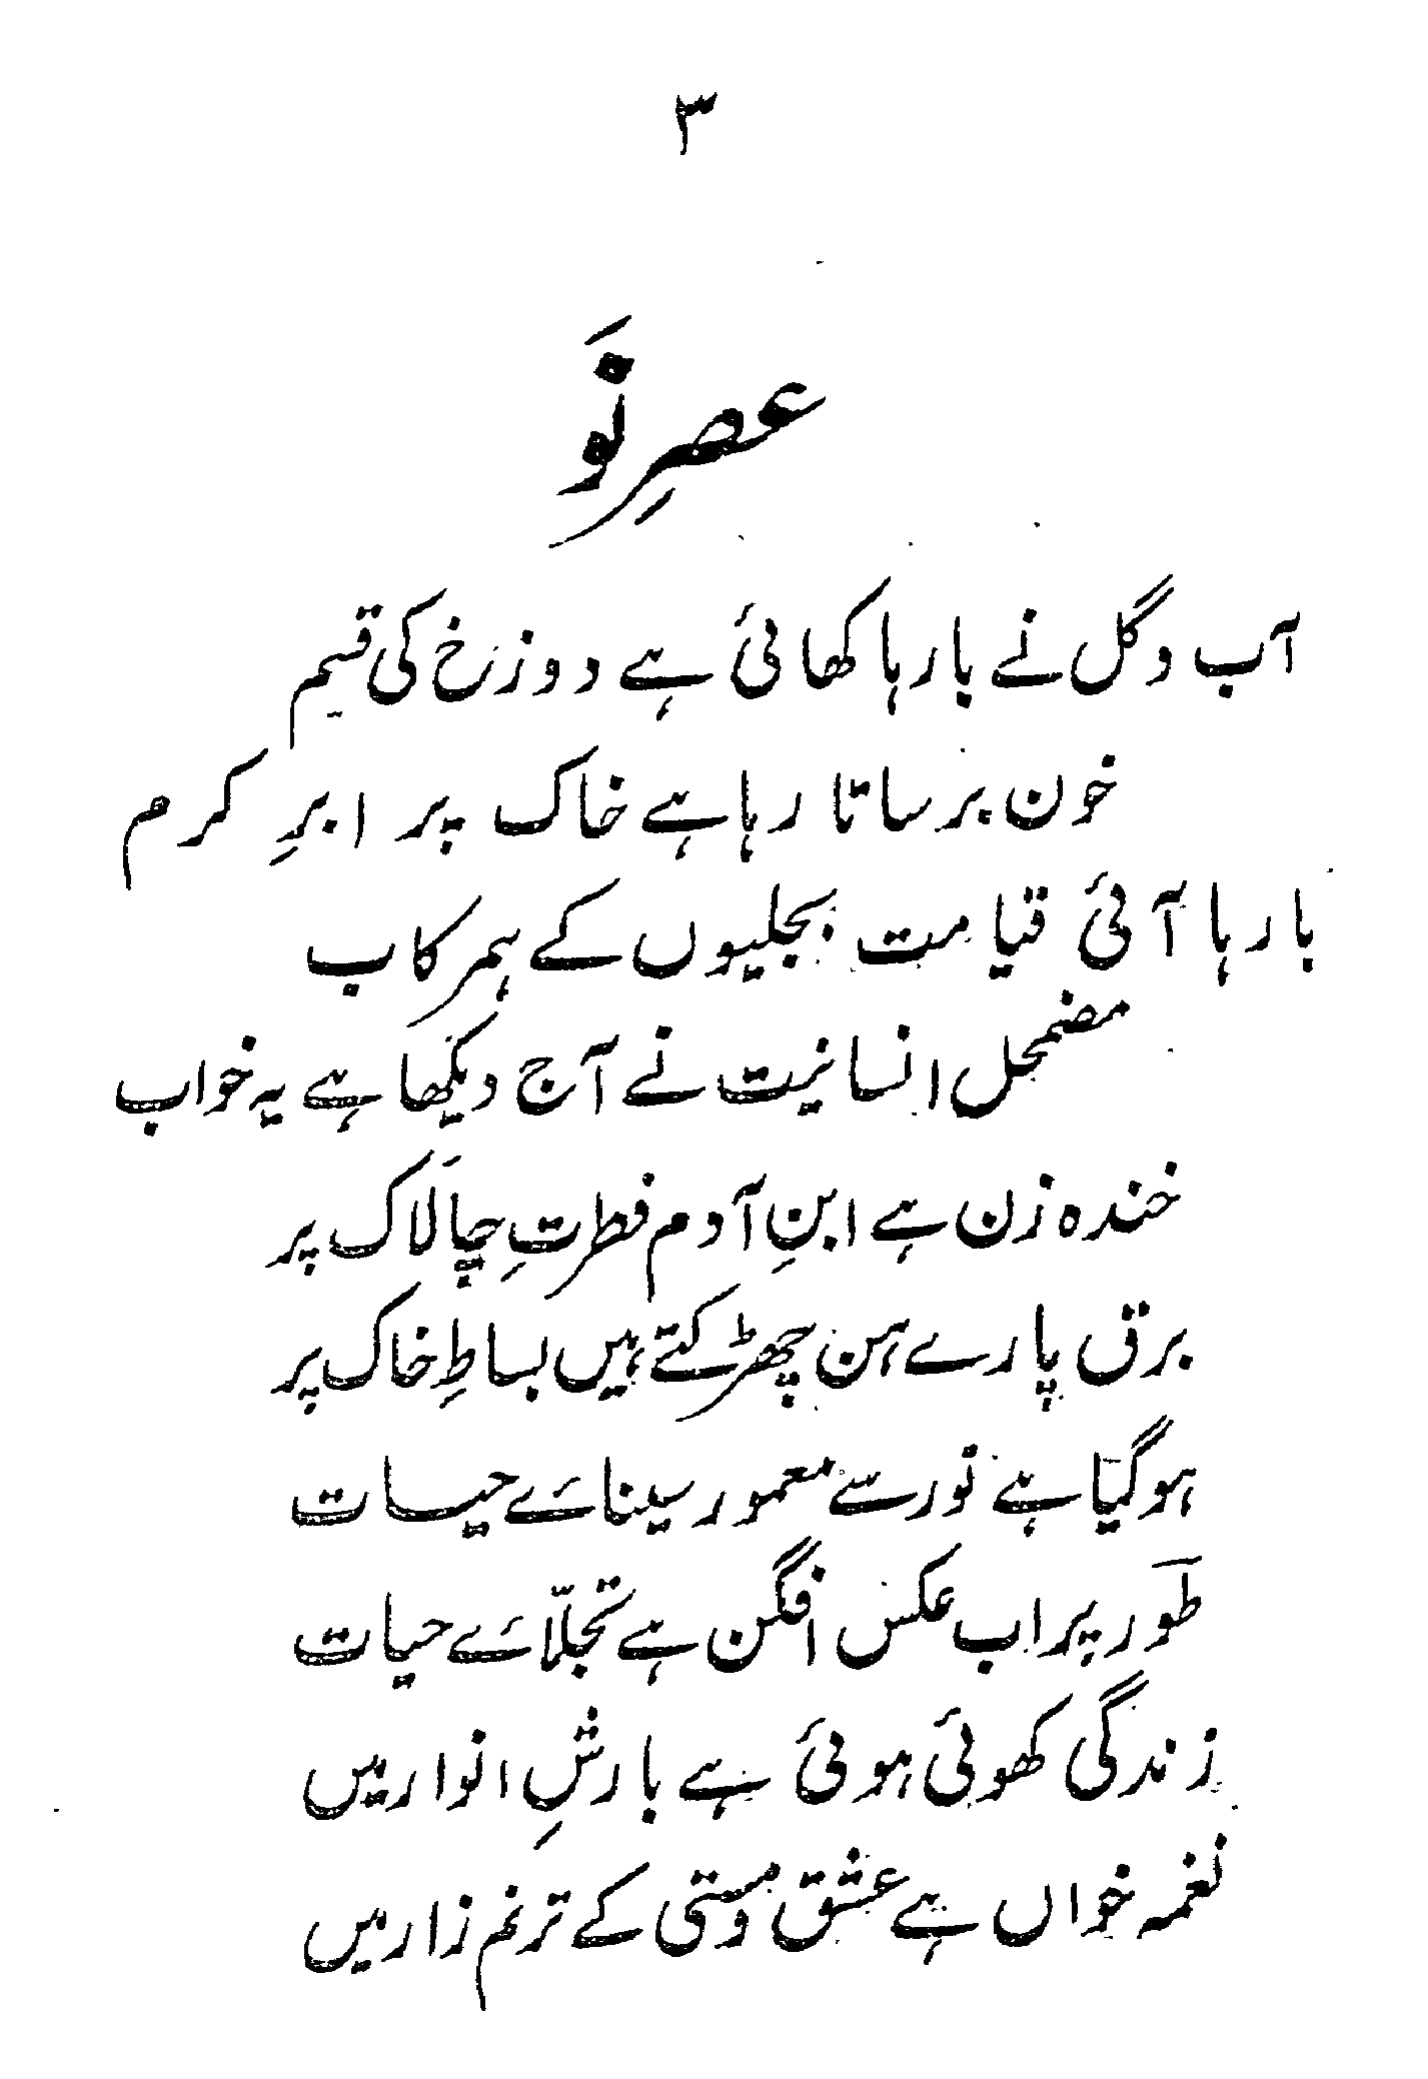 ۳
عصرِ نَو
آب و گل نے بارہا کھائی ہے دوزخ کی قسم
خون برساتا رہا ہے خاک پر ابرِ کرم
بارہا آئی قیامت بجلیوں کے ہمرکاب
مضمحل انسانیت نے آج دیکھا ہے یہ خواب
خندہ زن ہے ابنِ آدم فطرتِ چالاک پر
برق پارے ہن چھڑکتے ہیں بساطِ خاک پر
ہوگیا ہے نور سے معمور سیناۓ حیات
طور پر اب عکس افگن ہے تجلّاۓ حیات
زندگی کھوئی ہوئی ہے بارشِ انوار میں
نغمہ خواں ہے عشق و مستی کے ترنم زار میں